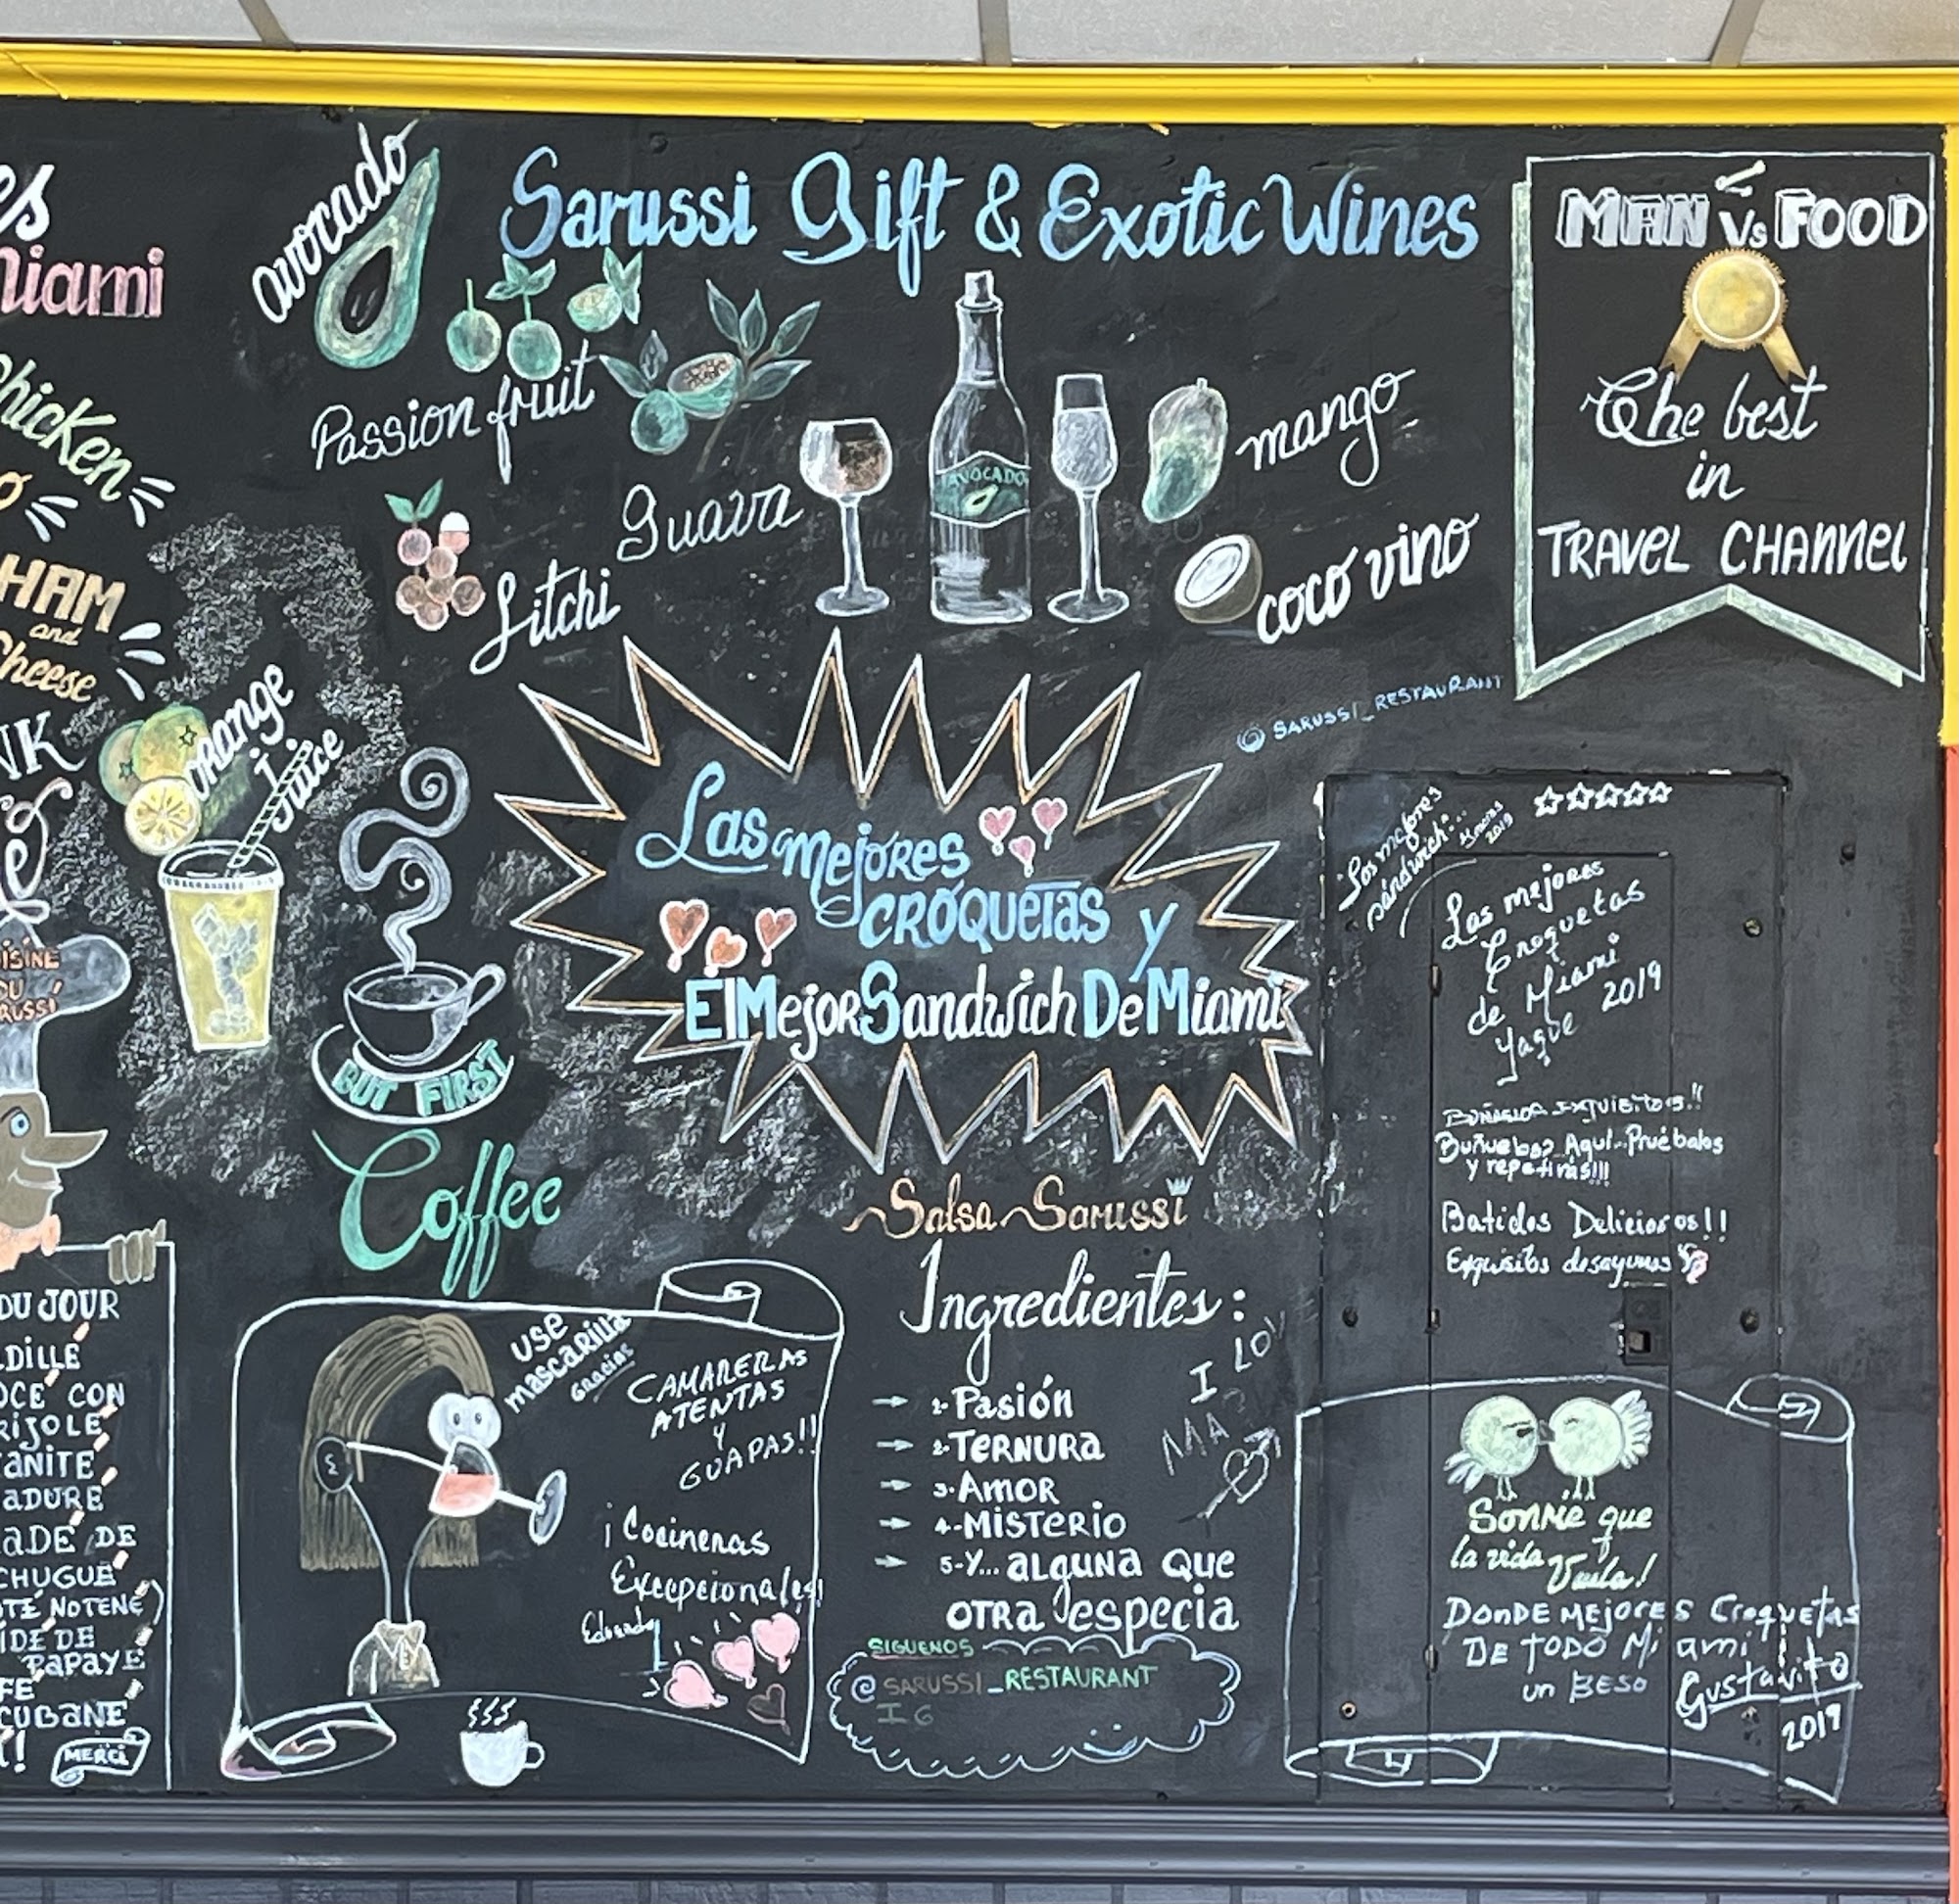 es
Miami
Chicken
HAM
and
Cheese
NK
orange
Juice
CUISINE
DU
SARUSSI
BUT FIRST
Coffee
avocado
Passion fruit
Guava
Litchi
Sarussi Gift & Exotic Wines
AVOCADO
mango
coco vino
MAN Vs FOOD
The best
in
TRAVEL CHANNEL
SARUSSI_RESTAURANT
Las mejores
CROQUETAS y
El Mejor Sandwich De Miami
"Los mejores
sandwich"...
2019
Las mejores
Croquetas
de Miami
Yaque 2019
Buñuelos? Aquí..Pruébalos
y repetirás!!!
Batidos Deliciosos!!
Exquisitos desayunos
Salsa Sarussi
Ingredientes:
1-Pasión
2-TERNURA
3-AMOR
4-MISTERIO
5-Y... alguna que
OTRa especia
I LO
MA
SIGUENOS
@SARUSSI_RESTAURANT
IG
USE
mascarilla
GRACIAS
CAMARERAS
ATENTAS
Y
GUAPAS!!
¡Cocineras
Excepcionales!
DU JOUR
DILLE
OCE CON
RIJOLE
ANITE
ADURE
ADE DE
CHUGUE
OTE NOTENE
IDE DE
PAPAYE
FE
CUBANE
!
MERCI
Sonríe que
la vida
Vuela!
DONDE MEJORES Croquetas
DE TODO Miami
un BESO
Gustavito
2017